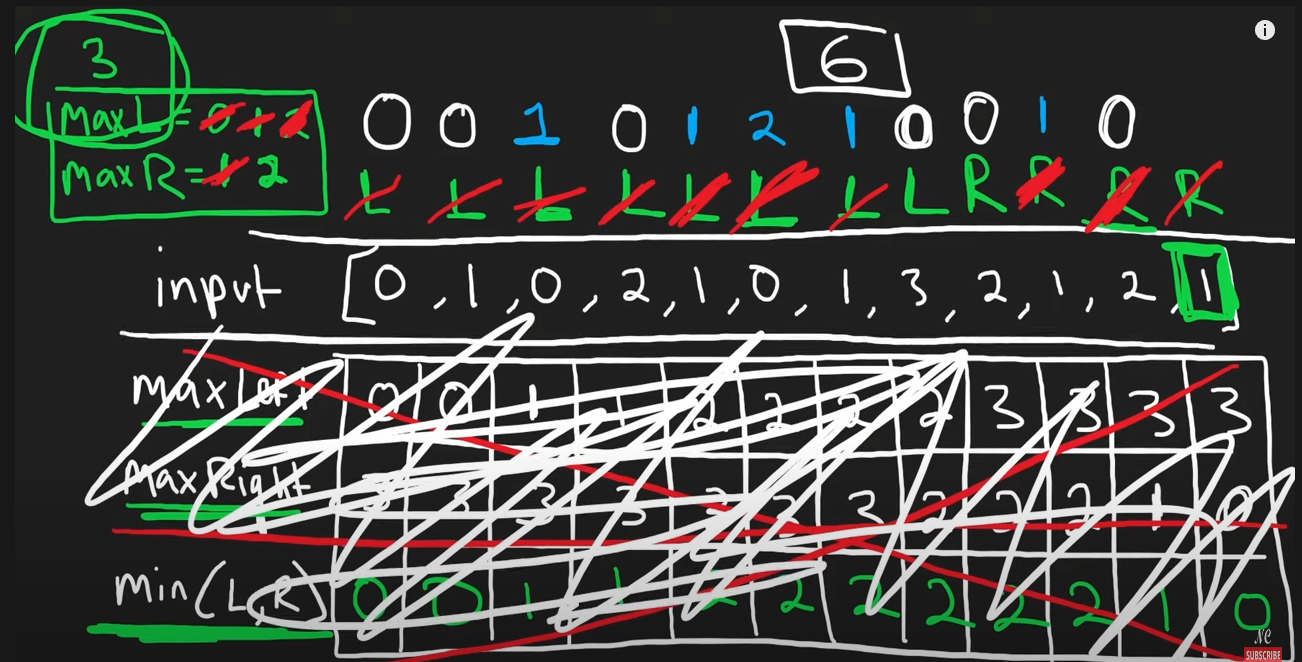 3
6
maxL = 0 1 2
maxR = 1 2
0 0 1 0 1 2 1 0 0 1 0
L L L L L L L L R R R R
input [0, 1, 0, 2, 1, 0, 1, 3, 2, 1, 2, 1]
maxLeft 0 0 1 1 2 2 2 2 3 3 3 3
maxRight 3 3 3 3 3 3 3 2 2 2 1 0
min(L,R) 0 0 1 1 2 2 2 2 2 2 1 0
NC
SUBSCRIBE